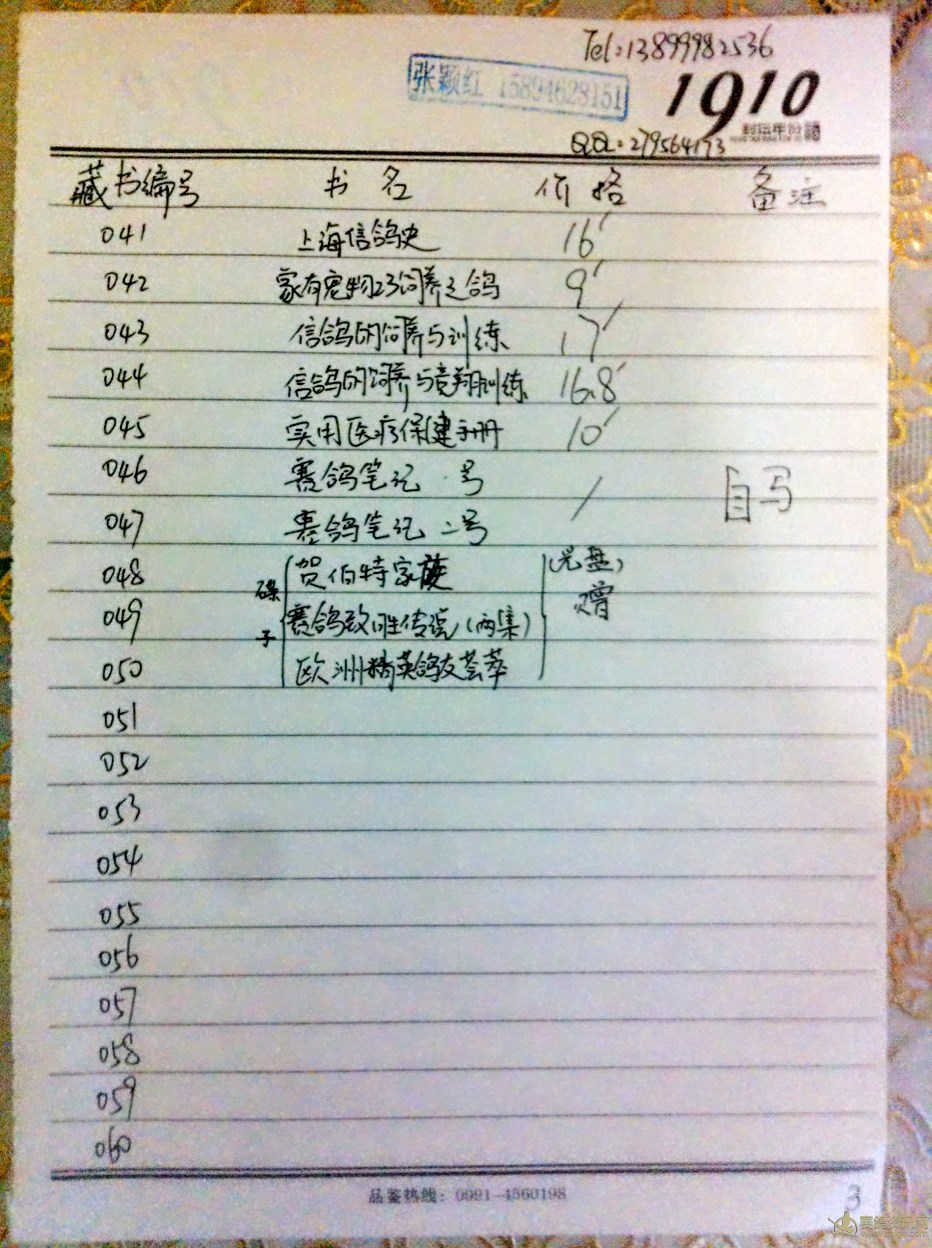 Tel:13899982536
张颖红 15894628151
1910
封坛年份
QQ:279564173
藏书编号 书名 价格 备注
041 上海信鸽史 16'
042 家有宠物23饲养之鸽 9'
043 信鸽的饲养与训练 17'
044 信鸽的饲养与竞翔训练 16.8'
045 实用医疗保健手册 10'
046 赛鸽笔记 一号 / 自写
047 赛鸽笔记 二号
048 碟 贺伯特家族 (光盘)
049 子 赛鸽致胜传说(两集) 赠
050 欧洲精英鸽友荟萃
051
052
053
054
055
056
057
058
059
060
品鉴热线：0991-4560198
3